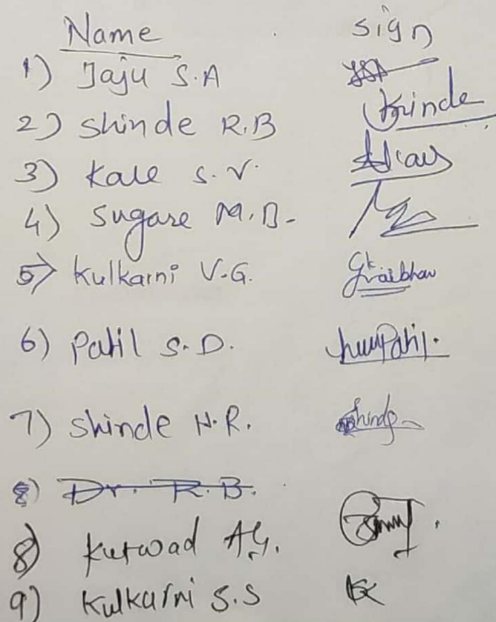 Name sign
1) Jaju S.A
2) Shinde R.B Shinde
3) Kale S.V.
4) Sugare M.B.
5) Kulkarni V.G. GkVaibhav
6) Patil S.D. Patil.
7) Shinde H.R. Shinde
8) Dr. R.B.
8) Kutwad A.G.
9) Kulkarni S.S